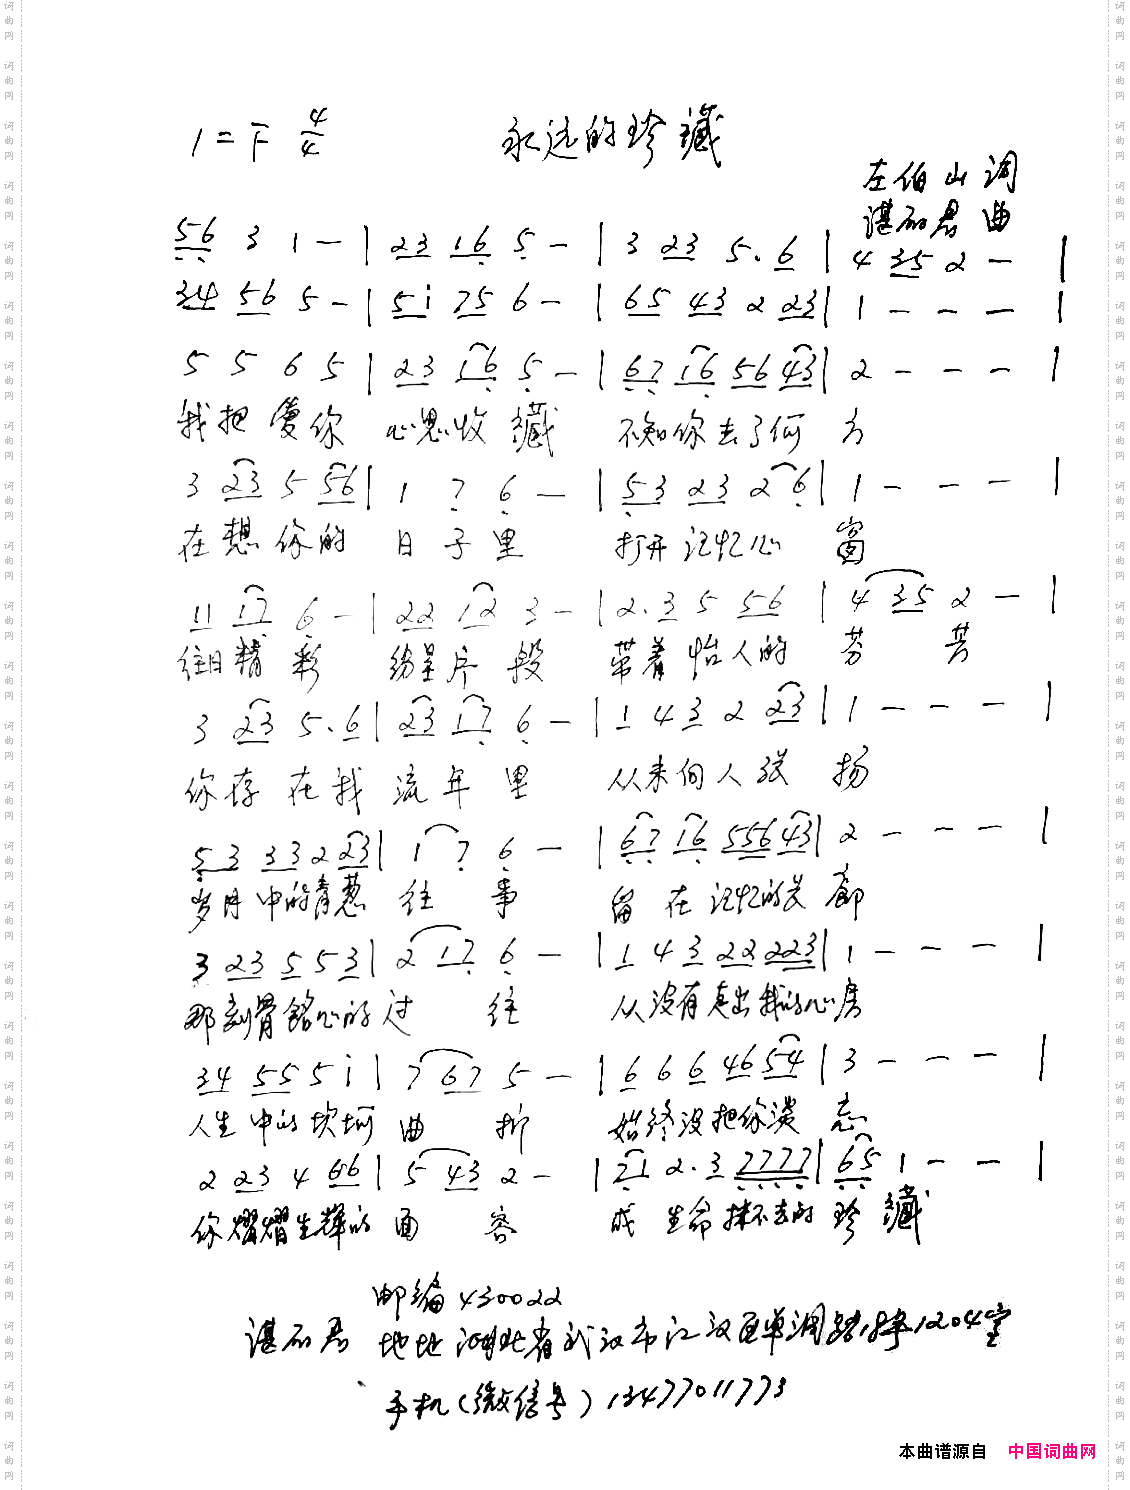 1=F 4/4 永远的珍藏
左伯山 词
谌丽君 曲
56 3 1 - | 23 16 5 - | 3 23 5. 6 | 4 35 2 - |
34 56 5 - | 5i 75 6 - | 65 43 2 23 | 1 - - - |
5 5 6 5 | 23 16 5 - | 67 16 56 43 | 2 - - - |
我把爱你 心思收藏 不知你去了何方
3 23 5 56 | 1 7 6 - | 53 23 2 6 | 1 - - - |
在想你的 日子里 打开记忆心窗
11 17 6 - | 22 12 3 - | 2. 3 5 56 | 4 35 2 - |
往日精彩 纷呈片段 带着怡人的 芬芳
3 23 5. 6 | 23 17 6 - | 1 4 3 2 23 | 1 - - - |
你存在我 流年里 从未向人张扬
53 33 2 23 | 1 7 6 - | 67 16 556 43 | 2 - - - |
岁月中的青葱 往事 留在记忆的长廊
3 23 5 5 3 | 2 17 6 - | 1 4 3 22 223 | 1 - - - |
那刻骨铭心的过往 从没有走出我的心房
34 55 5 i | 7 67 5 - | 6 6 6 46 54 | 3 - - - |
人生中的坎坷 曲折 始终没把你淡忘
2 23 4 66 | 5 43 2 - | 21 2. 3 7777 | 65 1 - - |
你熠熠生辉的面容 成生命抹不去的珍藏
邮编430022
谌丽君 地址 湖北省武汉市江汉区单洞路 1204室
手机(微信号) 13477011773
本曲谱源自 中国词曲网
词曲网